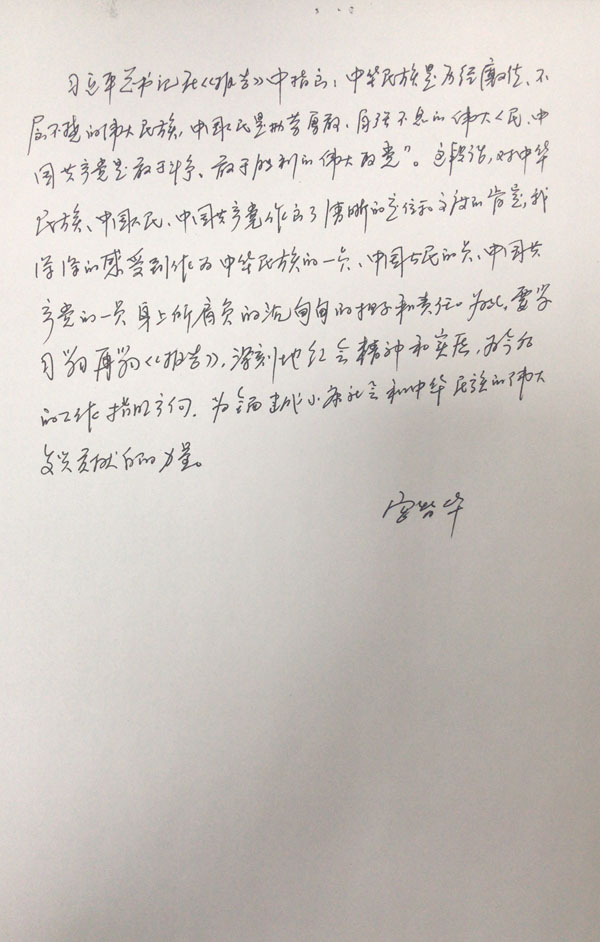 习近平总书记在《报告》中指出，中华民族是历经磨难、不
屈不挠的伟大民族，中国人民是勤劳勇敢、自强不息的伟大人民，中
国共产党是敢于斗争、敢于胜利的伟大政党”。这段话，对中华
民族、中国人民、中国共产党作出了清晰的定位和高度的肯定，我
深深的感受到作为中华民族的一员、中国公民的一员、中国共
产党的一员身上所肩负的沉甸甸的担子和责任。为此，需学
习学习再学习《报告》，深刻地领会精神和实质，为今后
的工作指明方向，为全面建成小康社会和中华民族的伟大
复兴贡献自己的力量。